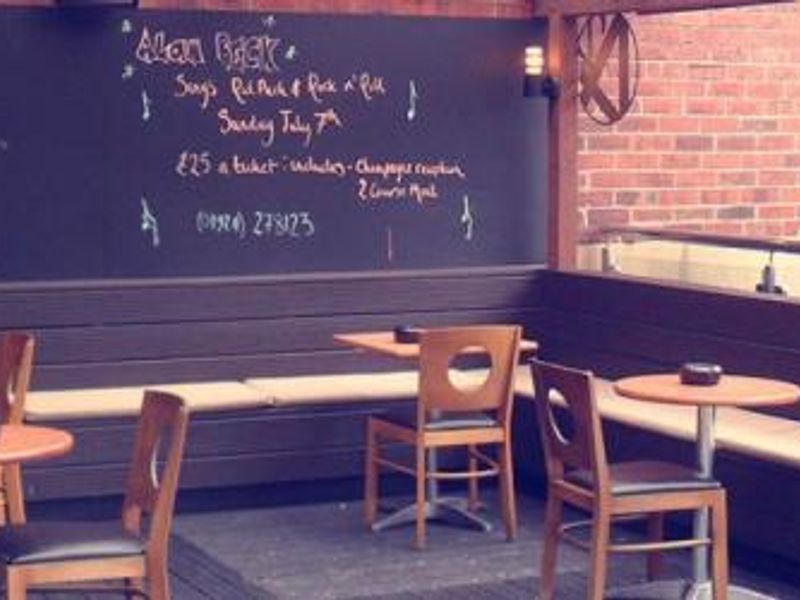 Alan Beck
Sings Rat Pack & Rock n' Roll
Sunday July 7th
£25 a ticket : includes - Champagne reception
2 Course Meal
(01924) 278123